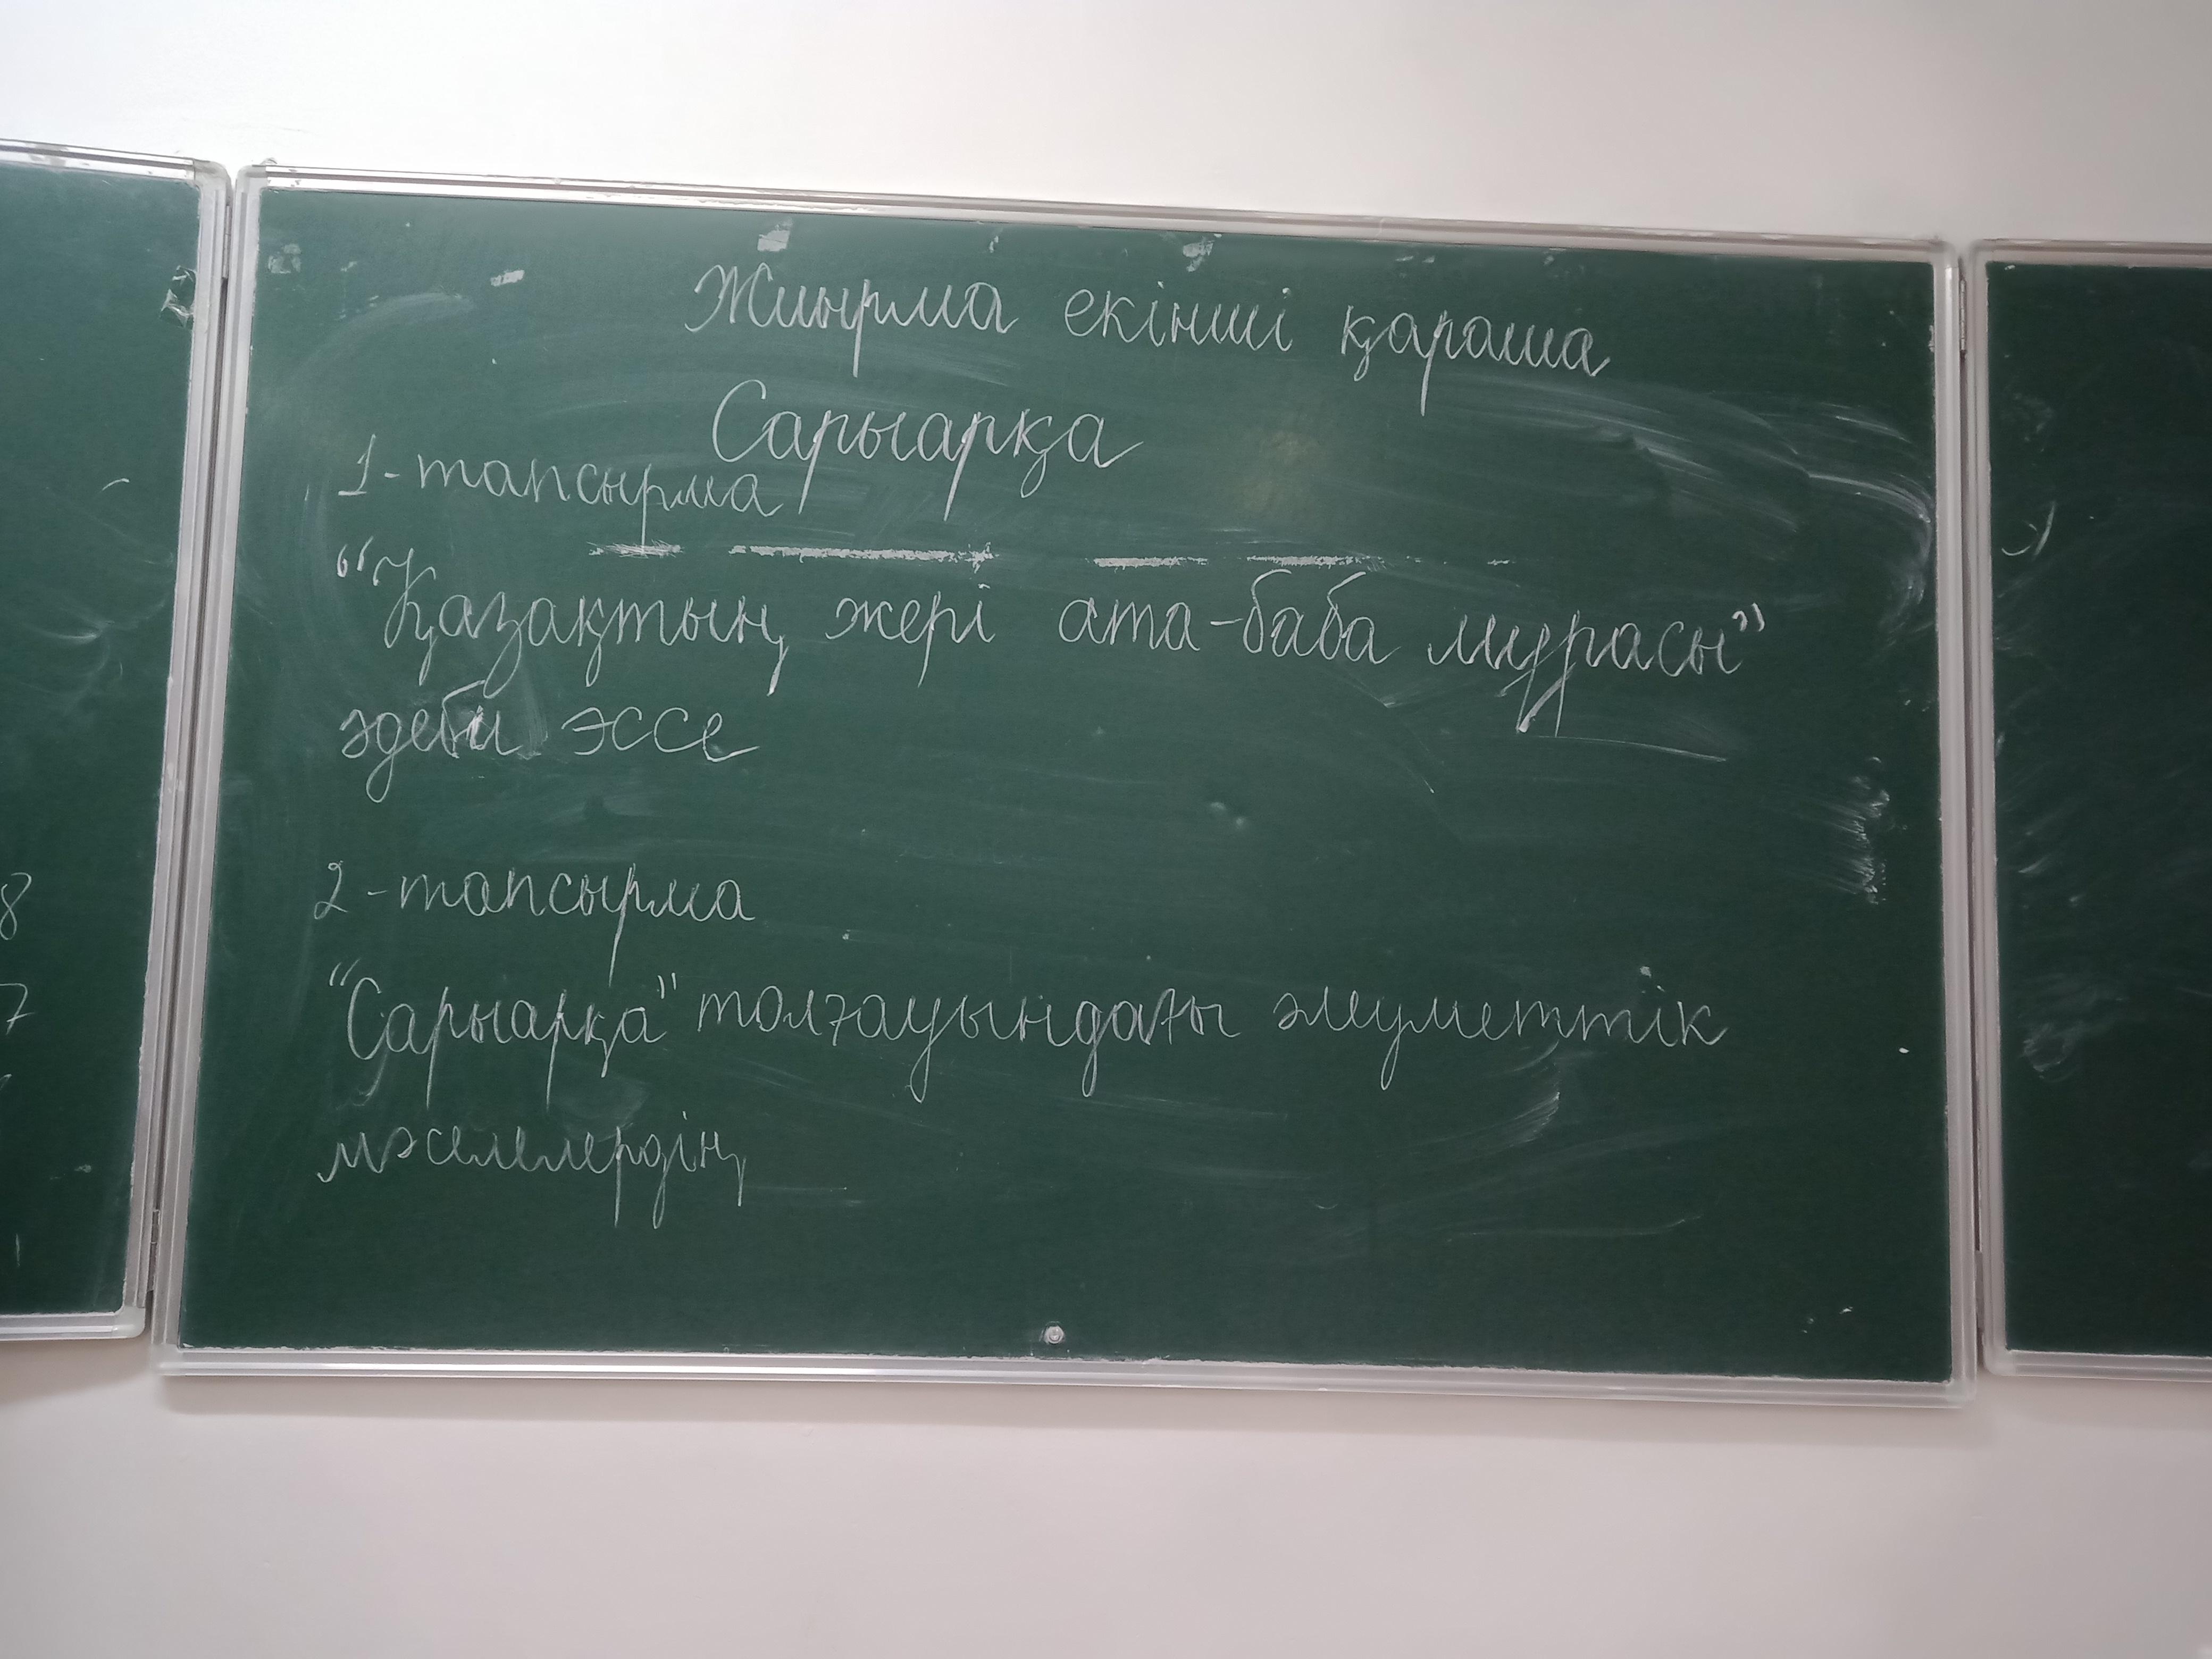 Жиырма екінші қараша
Сарыарқа
1-тапсырма
“Қазақтың жері ата-баба мұрасы”
әдеби эссе
2-тапсырма
"Сарыарқа" толғауындағы әлеуметтік
мәселелердің
8
7